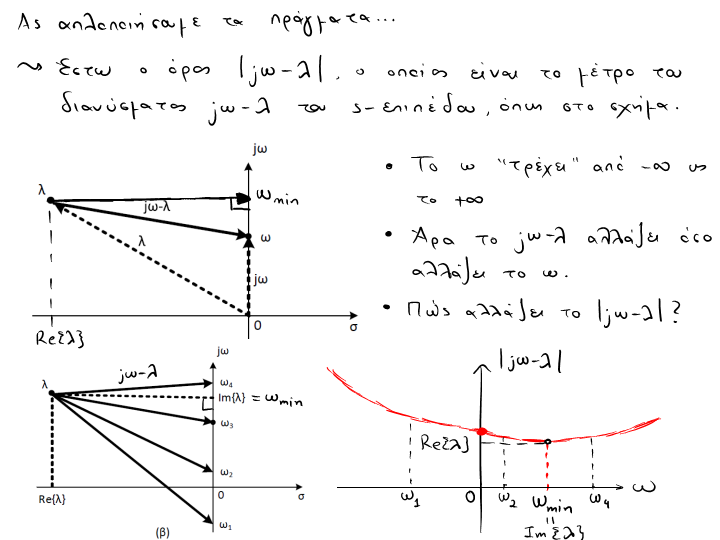 Ας απλοποιήσουμε τα πράγματα...
~> Έστω ο όρος |jω-λ|, ο οποίος είναι το μέτρο του
διανύσματος jω-λ του s-επιπέδου, όπως στο σχήμα.
jω
λ
ω min
jω-λ
λ
ω
jω
0
σ
Re{λ}
• Το ω "τρέχει" από -∞ ως
το +∞
• Άρα το jω-λ αλλάζει όσο
αλλάζει το ω.
• Πώς αλλάζει το |jω-λ|?
jω
jω-λ
λ
ω₄
Im{λ} = ωmin
ω₃
ω₂
Re{λ}
0
σ
ω₁
(β)
|jω-λ|
Re{λ}
ω₁
0
ω₂
ωmin
ω₄
ω
=
Im{λ}